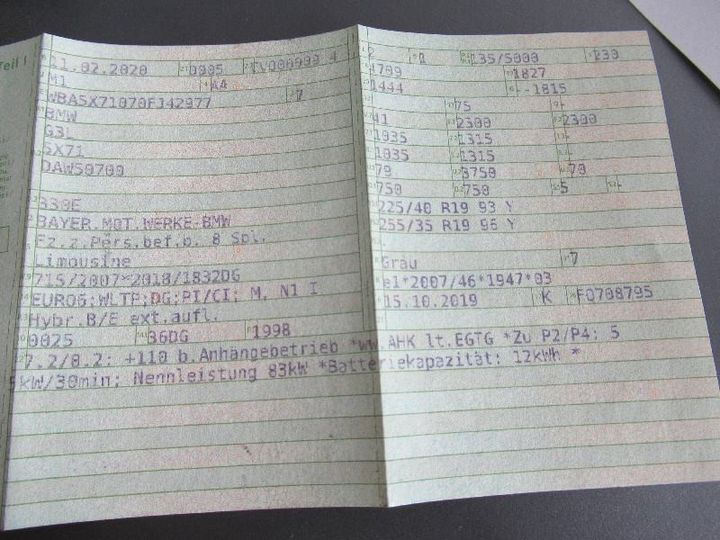 Teil I
11.02.2020 0005 CV000999 4
M1 AA
WBA5X71070FJ42977 7
BMW
G3L
5X71
DAW50700
330E
BAYER.MOT.WERKE-BMW
Fz.z.Pers.bef.b. 8 Spl.
Limousine
715/2007*2018/1832DG
EURO6;WLTP;DG;PI/CI; M, N1 I
Hybr.B/E ext.aufl.
0025 36DG 1998
7.2/8.2: +110 b.Anhängebetrieb *ww.AHK lt.EGTG *Zu P2/P4: 5
5kW/30min; Nennleistung 83kW *Batteriekapazität: 12kWh *
2 0 135/5000 230
4709 1827
1444 --1815
75
41 2300 2300
1035 1315
1035 1315
79 3750 70
750 750 5
225/40 R19 93 Y
255/35 R19 96 Y
Grau 7
e1*2007/46*1947*03
15.10.2019 K F0708795